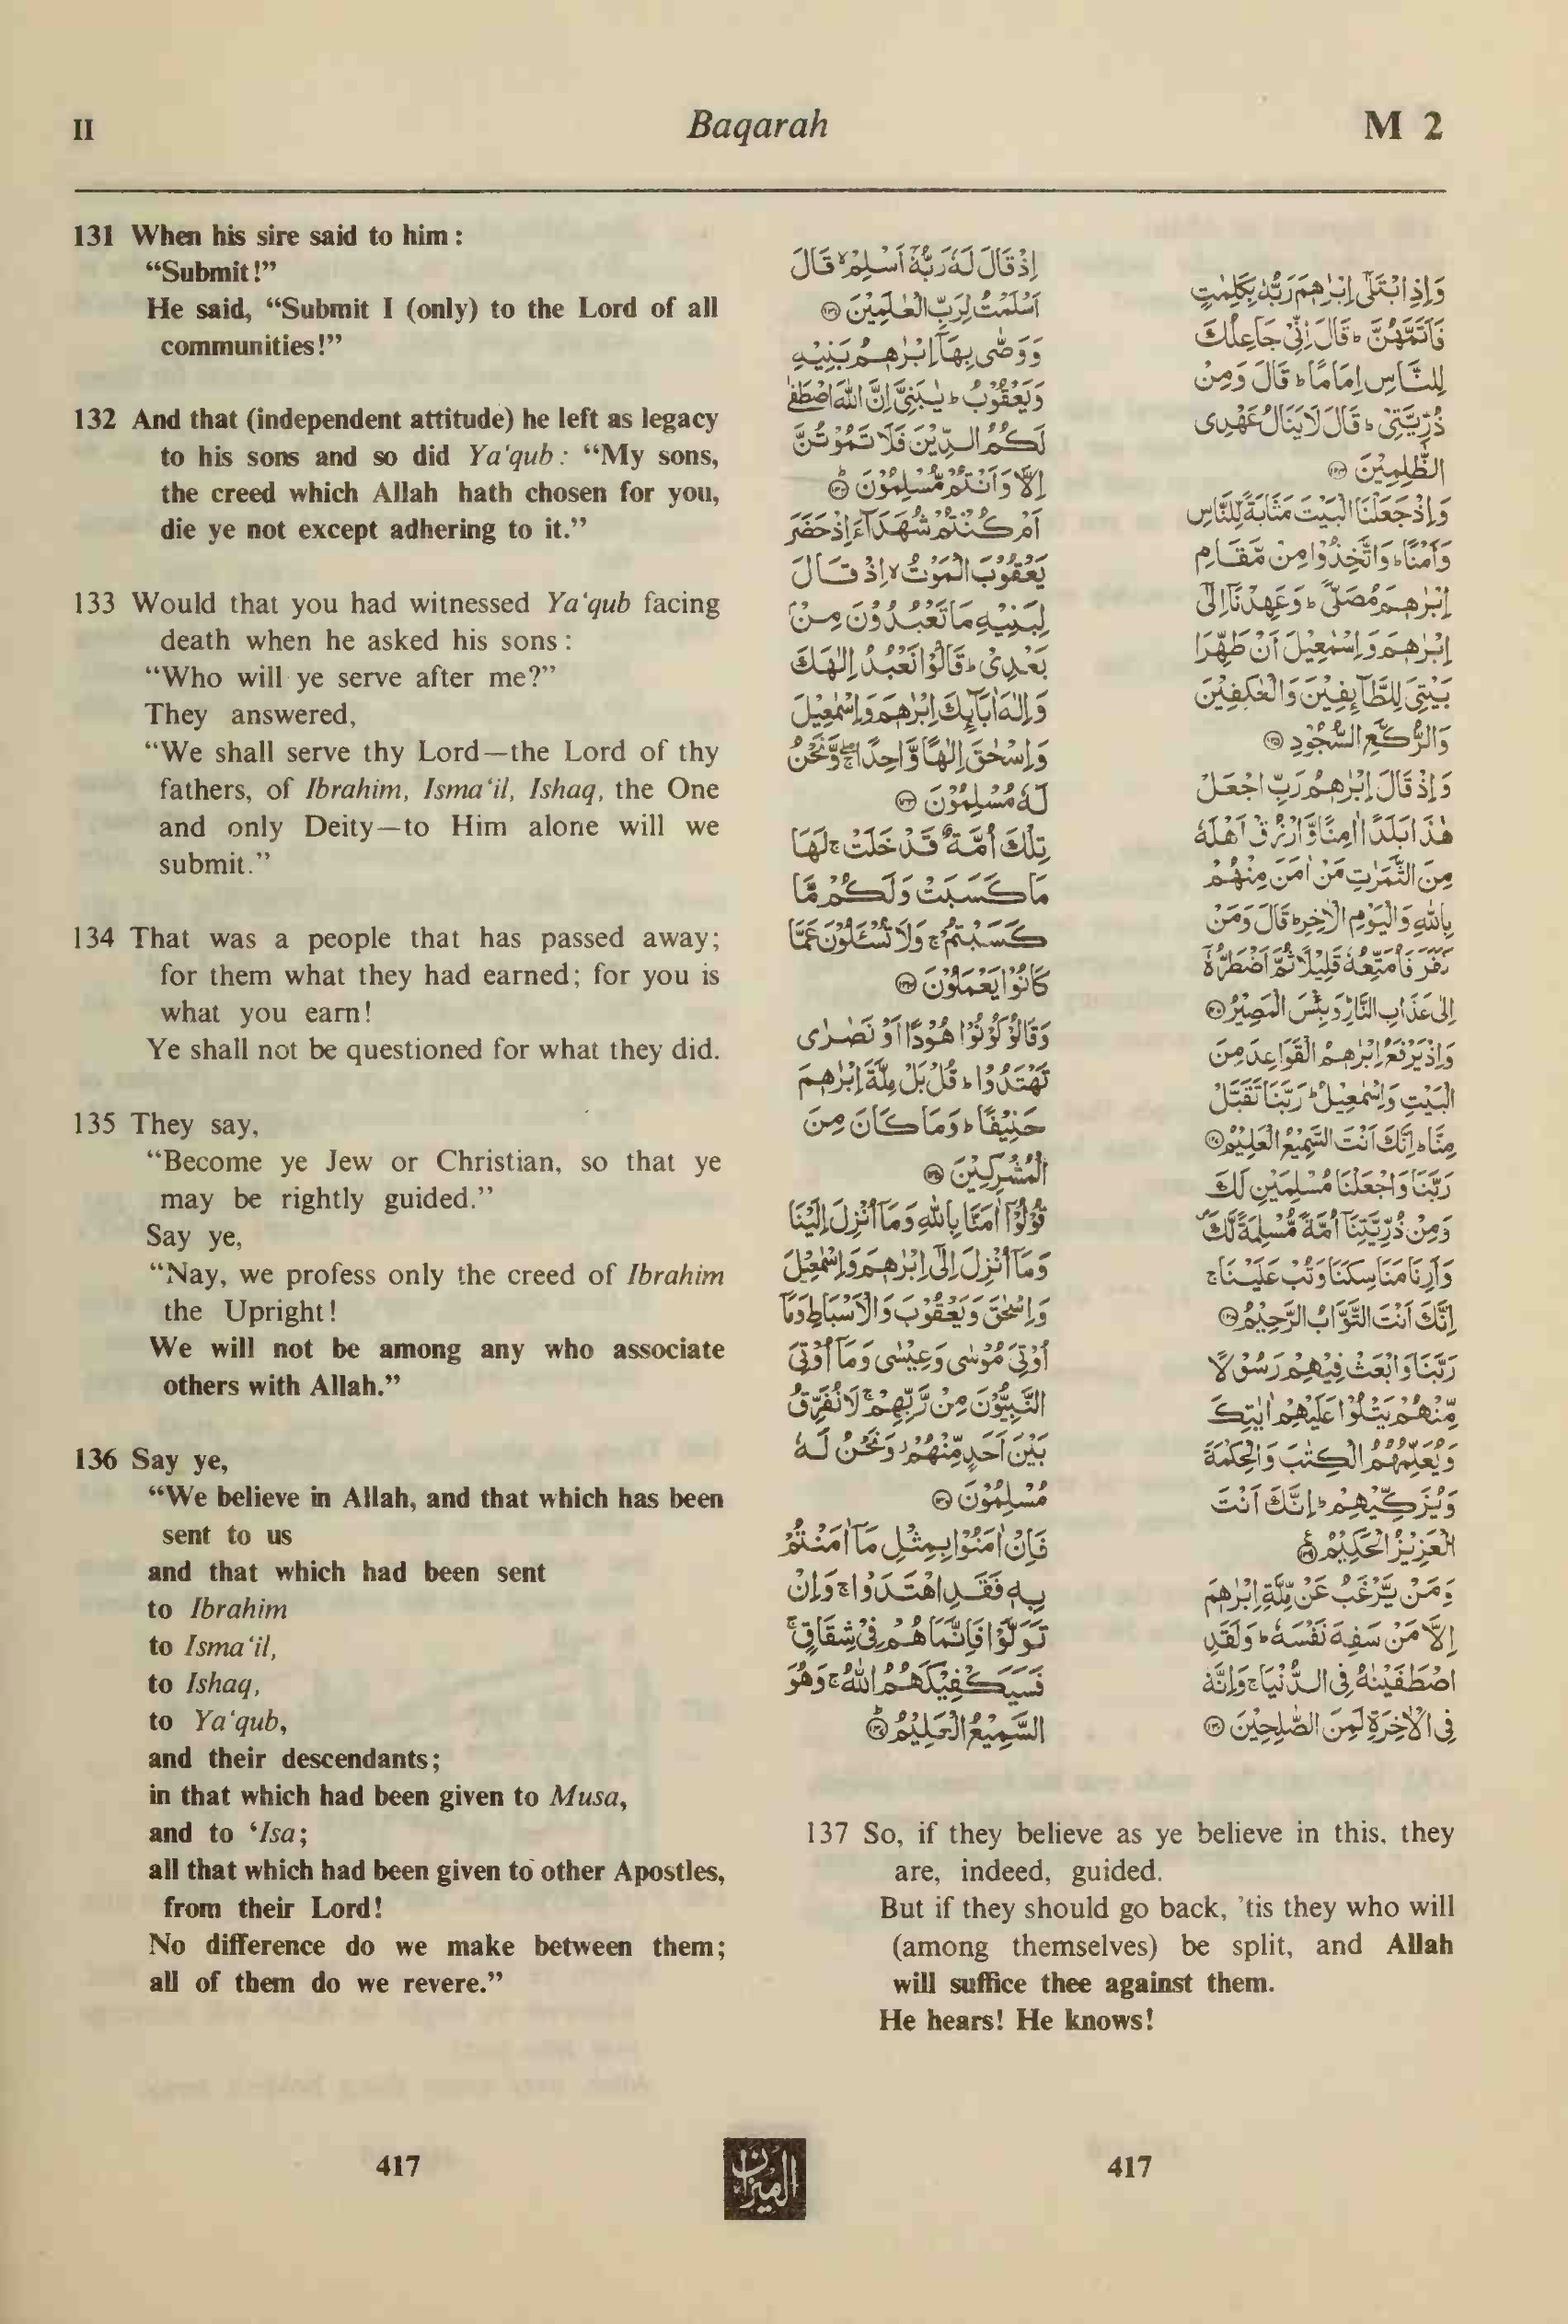 II
Baqarah
M 2
131 When his sire said to him :
“Submit !”
He said, “Submit I (only) to the Lord of all
communities !”
132 And that (independent attitude) he left as legacy
to his sons and so did Ya‘qub : “My sons,
the creed which Allah hath chosen for you,
die ye not except adhering to it.”
133 Would that you had witnessed Ya‘qub facing
death when he asked his sons :
“Who will ye serve after me?”
They answered,
“We shall serve thy Lord—the Lord of thy
fathers, of Ibrahim, Isma‘il, Ishaq, the One
and only Deity—to Him alone will we
submit.”
134 That was a people that has passed away;
for them what they had earned; for you is
what you earn!
Ye shall not be questioned for what they did.
135 They say,
“Become ye Jew or Christian, so that ye
may be rightly guided.”
Say ye,
“Nay, we profess only the creed of Ibrahim
the Upright!
We will not be among any who associate
others with Allah.”
136 Say ye,
“We believe in Allah, and that which has been
sent to us
and that which had been sent
to Ibrahim
to Isma‘il,
to Ishaq,
to Ya‘qub,
and their descendants;
in that which had been given to Musa,
and to ‘Isa;
all that which had been given to other Apostles,
from their Lord!
No difference do we make between them;
all of them do we revere.”
وَاِذِ ابْتَلٰٓى اِبْرٰهٖمَ رَبُّهٗ بِكَلِمٰتٍ
فَاَتَمَّهُنَّ ؕ قَالَ اِنِّىْ جَاعِلُكَ
لِلنَّاسِ اِمَامًا ؕ قَالَ وَمِنْ
ذُرِّيَّتِىْ ؕ قَالَ لَا يَنَالُ عَهْدِى
الظّٰلِمِيْنَ ۝۱۲۴
وَاِذْ جَعَلْنَا الْبَيْتَ مَثَابَةً لِّلنَّاسِ
وَاَمْنًا ؕ وَاتَّخِذُوْا مِنْ مَّقَامِ
اِبْرٰهٖمَ مُصَلًّى ؕ وَعَهِدْنَاۤ اِلٰٓى
اِبْرٰهٖمَ وَاِسْمٰعِيْلَ اَنْ طَهِّرَا
بَيْتِىَ لِلطَّآئِفِيْنَ وَالْعٰكِفِيْنَ
وَالرُّكَّعِ السُّجُوْدِ ۝۱۲۵
وَاِذْ قَالَ اِبْرٰهٖمُ رَبِّ اجْعَلْ
هٰذَا بَلَدًا اٰمِنًا وَّارْزُقْ اَهْلَهٗ
مِنَ الثَّمَرٰتِ مَنْ اٰمَنَ مِنْهُمْ
بِاللّٰهِ وَالْيَوْمِ الْاٰخِرِ ؕ قَالَ وَمَنْ
كَفَرَ فَاُمَتِّعُهٗ قَلِيْلًا ثُمَّ اَضْطَرُّهٗۤ
اِلٰى عَذَابِ النَّارِ ؕ وَبِئْسَ الْمَصِيْرُ ۝۱۲۶
وَاِذْ يَرْفَعُ اِبْرٰهٖمُ الْقَوَاعِدَ مِنَ
الْبَيْتِ وَاِسْمٰعِيْلُ ؕ رَبَّنَا تَقَبَّلْ
مِنَّا ؕ اِنَّكَ اَنْتَ السَّمِيْعُ الْعَلِيْمُ ۝۱۲۷
رَبَّنَا وَاجْعَلْنَا مُسْلِمَيْنِ لَكَ
وَمِنْ ذُرِّيَّتِنَاۤ اُمَّةً مُّسْلِمَةً لَّكَ ۪
وَاَرِنَا مَنَاسِكَنَا وَتُبْ عَلَيْنَا ۚ
اِنَّكَ اَنْتَ التَّوَّابُ الرَّحِيْمُ ۝۱۲۸
رَبَّنَا وَابْعَثْ فِيْهِمْ رَسُوْلًا
مِّنْهُمْ يَتْلُوْا عَلَيْهِمْ اٰيٰتِكَ
وَيُعَلِّمُهُمُ الْكِتٰبَ وَالْحِكْمَةَ
وَيُزَكِّيْهِمْ ؕ اِنَّكَ اَنْتَ
الْعَزِيْزُ الْحَكِيْمُ ۝۱۲۹
وَمَنْ يَّرْغَبُ عَنْ مِّلَّةِ اِبْرٰهٖمَ
اِلَّا مَنْ سَفِهَ نَفْسَهٗ ؕ وَلَقَدِ
اصْطَفَيْنٰهُ فِى الدُّنْيَا ۚ وَاِنَّهٗ
فِى الْاٰخِرَةِ لَمِنَ الصّٰلِحِيْنَ ۝۱۳۰
اِذْ قَالَ لَهٗ رَبُّهٗۤ اَسْلِمْ ۙ قَالَ
اَسْلَمْتُ لِرَبِّ الْعٰلَمِيْنَ ۝۱۳۱
وَوَصّٰى بِهَاۤ اِبْرٰهٖمُ بَنِيْهِ
وَيَعْقُوْبُ ؕ يٰبَنِىَّ اِنَّ اللّٰهَ اصْطَفٰى
لَكُمُ الدِّيْنَ فَلَا تَمُوْتُنَّ
اِلَّا وَاَنْتُمْ مُّسْلِمُوْنَ ۝۱۳۲
اَمْ كُنْتُمْ شُهَدَآءَ اِذْ حَضَرَ
يَعْقُوْبَ الْمَوْتُ ۙ اِذْ قَالَ
لِبَنِيْهِ مَا تَعْبُدُوْنَ مِنْ
بَعْدِىْ ؕ قَالُوْا نَعْبُدُ اِلٰهَكَ
وَاِلٰهَ اٰبَآئِكَ اِبْرٰهٖمَ وَاِسْمٰعِيْلَ
وَاِسْحٰقَ اِلٰهًا وَّاحِدًا ۖۚ وَّنَحْنُ
لَهٗ مُسْلِمُوْنَ ۝۱۳۳
تِلْكَ اُمَّةٌ قَدْ خَلَتْ ۚ لَهَا
مَا كَسَبَتْ وَلَكُمْ مَّا
كَسَبْتُمْ ۚ وَلَا تُسْـَٔلُوْنَ عَمَّا
كَانُوْا يَعْمَلُوْنَ ۝۱۳۴
وَقَالُوْا كُوْنُوْا هُوْدًا اَوْ نَصٰرٰى
تَهْتَدُوْا ؕ قُلْ بَلْ مِلَّةَ اِبْرٰهٖمَ
حَنِيْفًا ؕ وَمَا كَانَ مِنَ
الْمُشْرِكِيْنَ ۝۱۳۵
قُوْلُوْۤا اٰمَنَّا بِاللّٰهِ وَمَاۤ اُنْزِلَ اِلَيْنَا
وَمَاۤ اُنْزِلَ اِلٰٓى اِبْرٰهٖمَ وَاِسْمٰعِيْلَ
وَاِسْحٰقَ وَيَعْقُوْبَ وَالْاَسْبَاطِ وَمَاۤ
اُوْتِىَ مُوْسٰى وَعِيْسٰى وَمَاۤ اُوْتِىَ
النَّبِيُّوْنَ مِنْ رَّبِّهِمْ ۚ لَا نُفَرِّقُ
بَيْنَ اَحَدٍ مِّنْهُمْ ۖ وَنَحْنُ لَهٗ
مُسْلِمُوْنَ ۝۱۳۶
فَاِنْ اٰمَنُوْا بِمِثْلِ مَاۤ اٰمَنْتُمْ
بِهٖ فَقَدِ اهْتَدَوْا ۚ وَاِنْ
تَوَلَّوْا فَاِنَّمَا هُمْ فِىْ شِقَاقٍ ۚ
فَسَيَكْفِيْكَهُمُ اللّٰهُ ۚ وَهُوَ
السَّمِيْعُ الْعَلِيْمُ ۝۱۳۷
137 So, if they believe as ye believe in this, they
are, indeed, guided.
But if they should go back, ’tis they who will
(among themselves) be split, and Allah
will suffice thee against them.
He hears! He knows!
417
الميزان
417